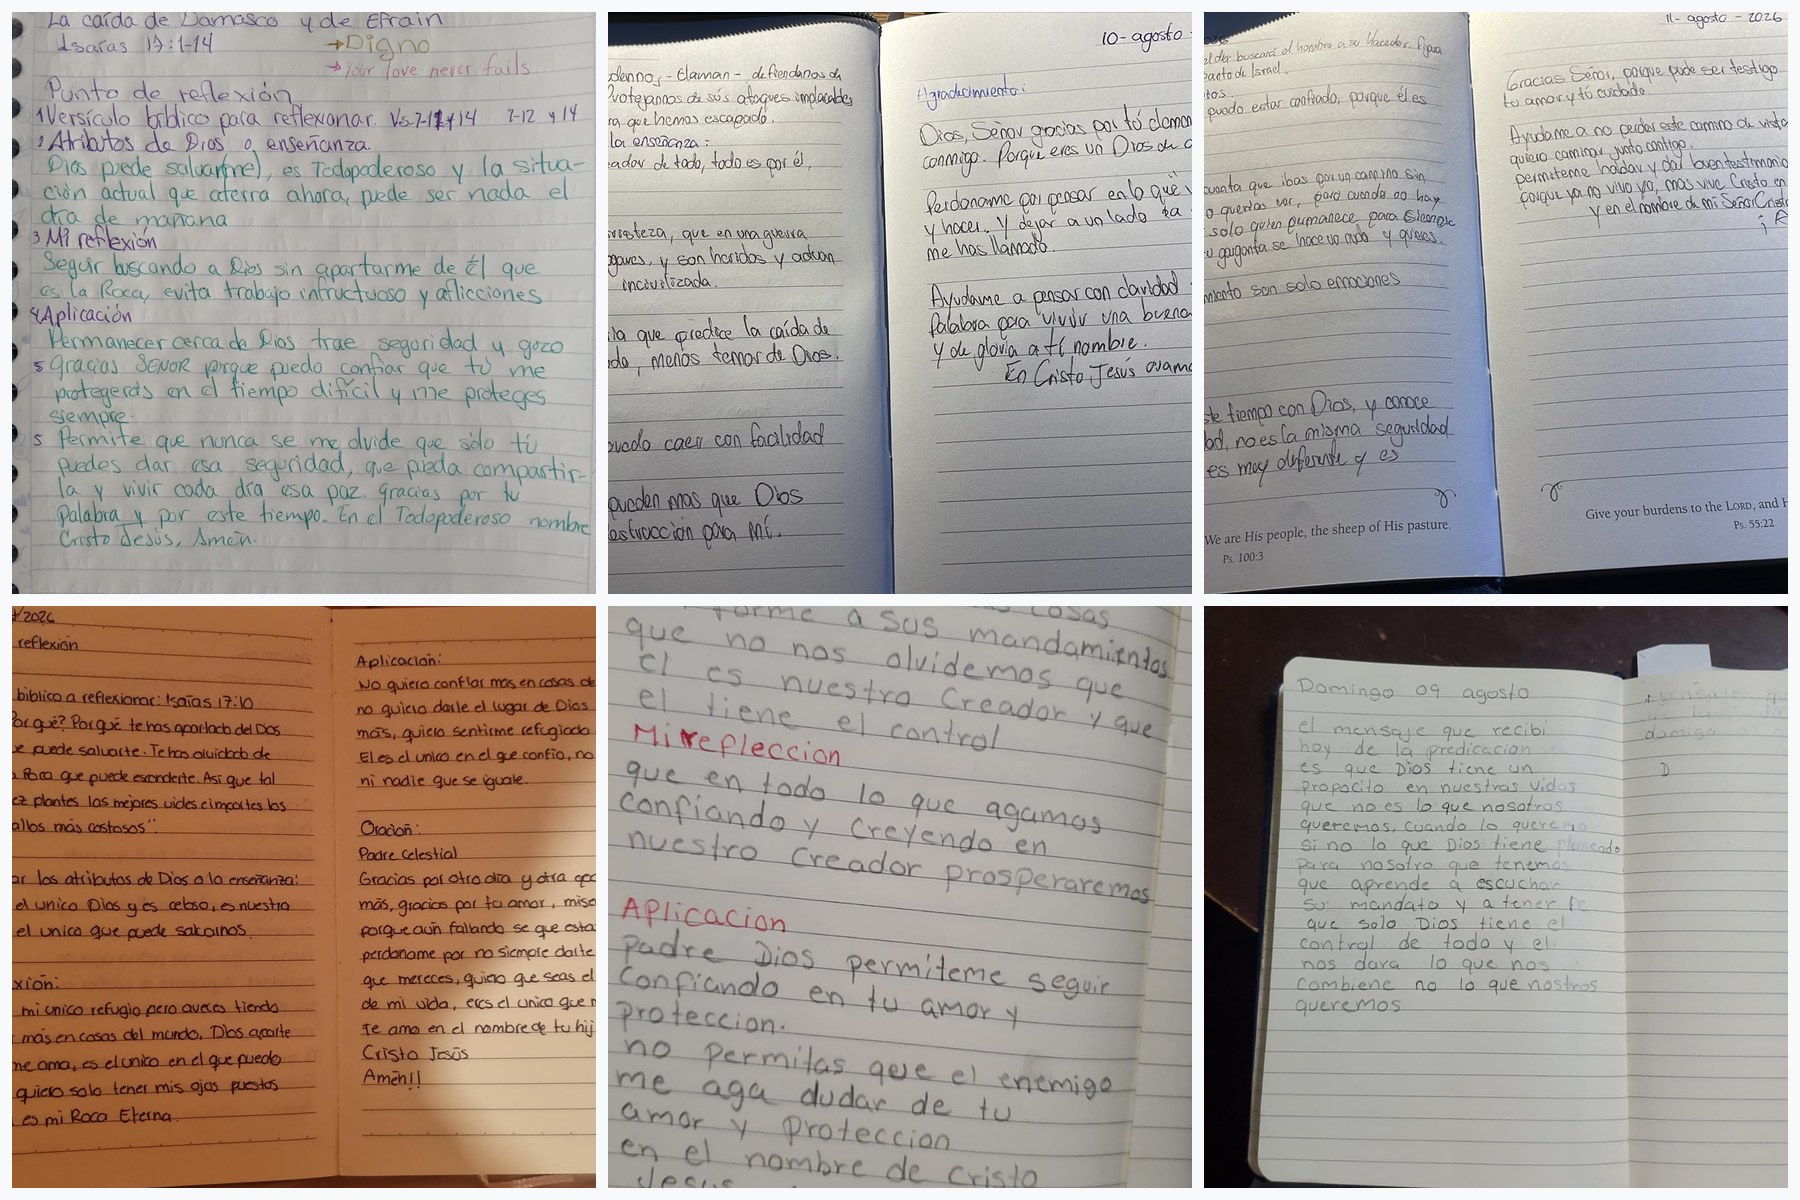 La caída de Damasco y de Efraín
Isaías 17:1-14
→Digno
→Your love never fails
Punto de reflexión
1 Versículo bíblico para reflexionar. Vs. 7-12 y 14
2 Atributos de Dios o enseñanza.
Dios puede salvar(me), es Todopoderoso y la situa-
ción actual que aterra ahora, puede ser nada el
día de mañana
3 Mi reflexión
Seguir buscando a Dios sin apartarme de Él que
es la Roca, evita trabajo infructuoso y aflicciones
4 Aplicación
Permanecer cerca de Dios trae seguridad y gozo
5 Gracias SEÑOR porque puedo confiar que tú me
protegerás en el tiempo difícil y me proteges
siempre.
5 Permite que nunca se me olvide que sólo tú
puedes dar esa seguridad, que pueda compartir-
la y vivir cada día esa paz. Gracias por tu
Palabra y por este tiempo. En el Todopoderoso nombre
Cristo Jesús, Amén.
claman - defiendanos de
Protejannos de sús ataques implacables
ra que hemos escapado.
la enseñanza:
ador de todo, todo es por él,
tristeza, que en una guerra
y son heridos y actuan
incivilizada.
ila que predice la caída de
do, menos temor de Dios.
puedo caer con facilidad
pueden mas que Dios
destrucción para mí.
10- agosto -
Agradecimiento:
Dios, Señor gracias por tú clemen
conmigo. Porque eres un Dios de
Perdoname por pensar en lo que
y hacer. Y dejar a un lado
me has llamado.
Ayudame a pensar con claridad
Palabra para vivir una buena
y de gloria a tí nombre.
En Cristo Jesús
el día buscará el hombre a su Hacedor.
santo de Israel.
puedo estar confiado, porque él es
cuenta que ibas por un camino sin
o querías ver, pero cuando no hay
solo quien permanece para siempre
garganta se hace un nudo y quieres
miento son solo emociones
ste tiempo con Dios, y conoce
no es la misma seguridad
es muy diferente y es
We are His people, the sheep of His pasture.
Ps. 100:3
11- agosto - 2026
Gracias Señor, porque pude ser testigo
tu amor y tú cuidado
Ayudame a no perder este camino de vista
quiero caminar junto contigo.
permiteme hablar y dar buen testimonio
porque ya no vivo yo, mas vive Cristo en
y en el nombre de mi Señor Cristo
Give your burdens to the LORD, and H
Ps. 55:22
/2026
reflexión
biblico a reflexionar: Isaías 17:10
Por qué? Porqué te has apartado del Dios
e puede salvarte. Te has olvidado de
Roca que puede esconderte. Así que tal
ez plantes las mejores vides e importes los
allos más costosos".
ar los atributos de Dios o la enseñanza:
el unico Dios y es celoso, es nuestra
el unico que puede salvarnos.
xión:
mi unico refugio pero aveces tiendo
más en cosas del mundo, Dios aparte
me ama, es el unico en el que puedo
quiero solo tener mis ojos puestos
es mi Roca Eterna.
Aplicación:
No quiero confiar mas en cosas de
no quiero darle el lugar de Dios
más, quiero sentirme refugiada
El es el unico en el que confio, no
ni nadie que se iguale.
Oración:
Padre Celestial
Gracias por otro día y otra opo
más, gracias por tu amor, mise
porque aún fallando se que esta
perdoname por no siempre darte
que mereces, quiero que seas el
de mi vida, eres el unico que
te amo en el nombre de tu hij
Cristo Jesús
Amén!!
forme a sus mandamientos
que no nos olvidemos que
el es nuestro Creador y que
el tiene el control
Mi refleccion
que en todo lo que agamos
confiando y creyendo en
nuestro Creador prosperaremos
Aplicacion
padre Dios permiteme seguir
confiando en tu amor y
proteccion.
no permitas que el enemigo
me aga dudar de tu
amor y proteccion
en el nombre de cristo
Jesus
Domingo 09 agosto
el mensaje que recibi
hoy de la predicacion
es que Dios tiene un
propocito en nuestras vidas
que no es lo que nosotros
queremos, cuando lo queremo
si no lo que Dios tiene planeado
para nosotro que tenemos
que aprende a escuchar
su mandato y a tener fe
que solo Dios tiene el
control de todo y el
nos dara lo que nos
combiene no lo que nostros
queremos
D